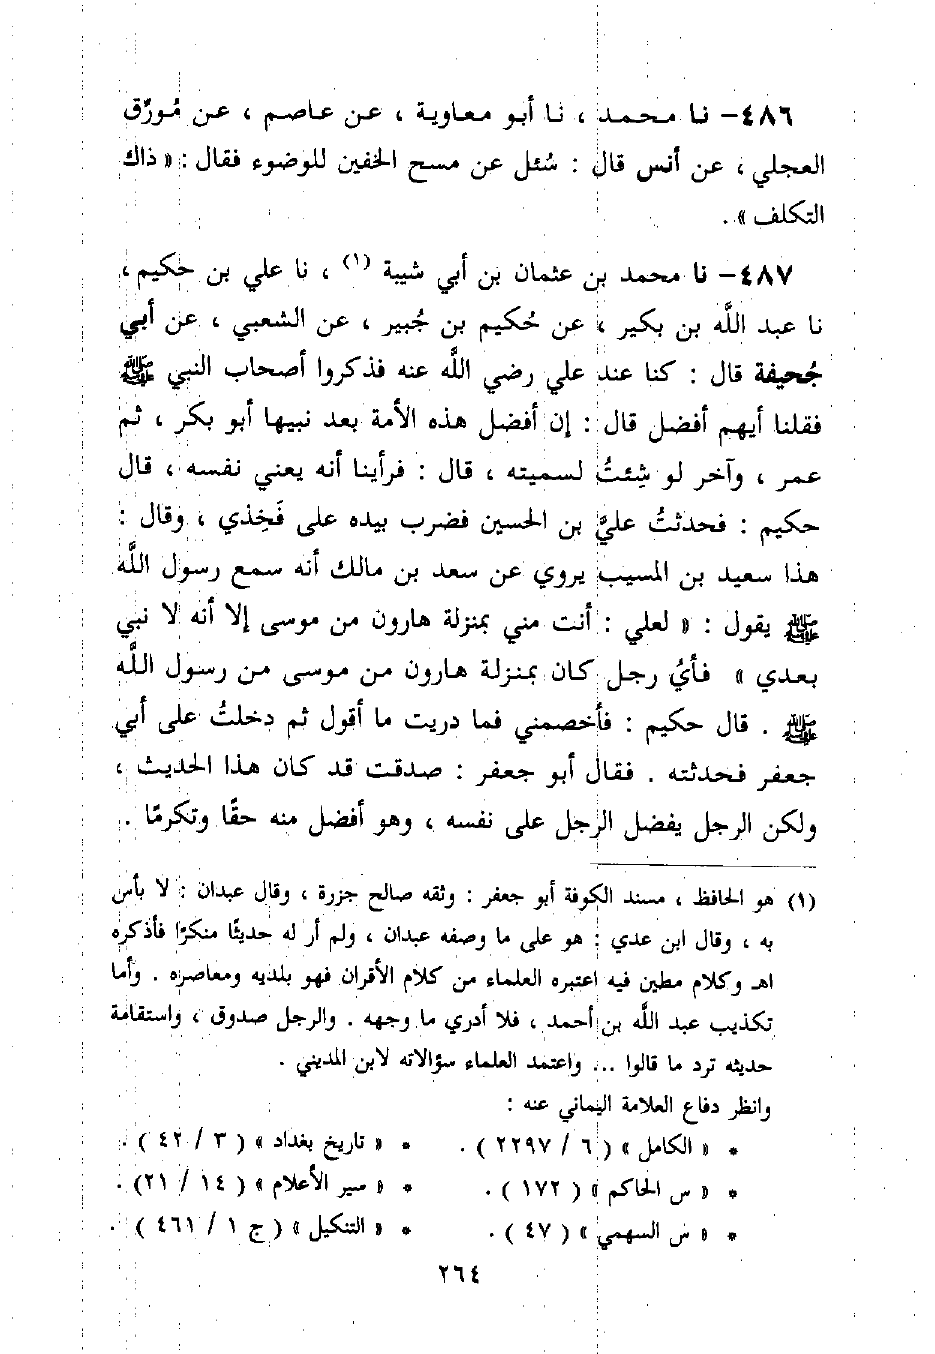 ٤٨٦– نا محمد ، نا أبو معاوية ، عن عاصم ، عن مُورِّق
العجلي ، عن أنس قال : سُئل عن مسح الخفين للوضوء فقال : « ذاك
التكلف » .
٤٨٧– نا محمد بن عثمان بن أبي شيبة (١) ، نا علي بن حكيم ،
نا عبد اللَّه بن بكير ، عن حُكيم بن جُبير ، عن الشعبي ، عن أبي
جُحيفة قال : كنا عند علي رضي اللَّه عنه فذكروا أصحاب النبي ﷺ
فقلنا أيهم أفضل قال : إن أفضل هذه الأمة بعد نبيها أبو بكر ، ثم
عمر ، وآخر لو شِئتُ لسميته ، قال : فرأينا أنه يعني نفسه ، قال
حكيم : فحدثتُ عليَّ بن الحسين فضرب بيده على فَخِذي ، وقال :
هذا سعيد بن المسيب يروي عن سعد بن مالك أنه سمع رسول اللَّه
ﷺ يقول : « لعلي : أنت مني بمنزلة هارون من موسى إلا أنه لا نبي
بعدي » فأيُّ رجل كان بمنزلة هارون من موسى من رسول اللَّه
ﷺ . قال حكيم : فأخصمني فما دريت ما أقول ثم دخلتُ على أبي
جعفر فحدثته . فقال أبو جعفر : صدقت قد كان هذا الحديث ،
ولكن الرجل يفضل الرجل على نفسه ، وهو أفضل منه حقًا وتكرمًا .
(١) هو الحافظ ، مسند الكوفة أبو جعفر : وثقه صالح جزرة ، وقال عبدان : لا بأس
به ، وقال ابن عدي : هو على ما وصفه عبدان ، ولم أر له حديثًا منكرًا فأذكره
اهـ وكلام مطين فيه اعتبره العلماء من كلام الأقران فهو بلديه ومعاصره . وأما
تكذيب عبد اللَّه بن أحمد ، فلا أدري ما وجهه . والرجل صدوق ، واستقامة
حديثه ترد ما قالوا ... واعتمد العلماء سؤالاته لابن المديني .
وانظر دفاع العلامة اليماني عنه :
* « الكامل » ( ٦ / ٢٢٩٧ ) . * « تاريخ بغداد » ( ٣ / ٤٢ ) .
* « س الحاكم » ( ١٧٢ ) . * « سير الأعلام » ( ١٤ / ٢١) .
* « س السهمي » ( ٤٧ ) . * « التنكيل » ( ج ١ / ٤٦١ ) .
٢٦٤